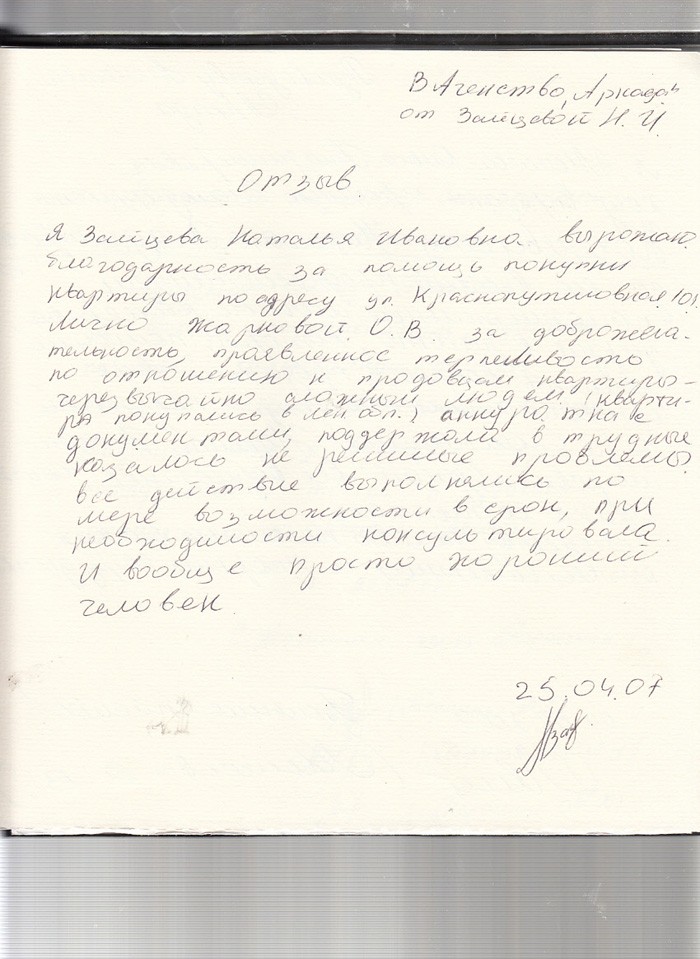 В Агенство „Аркада"
от Зайцевой Н. И.
Отзыв.
Я Зайцева Наталья Ивановна вырожаю
благодарность за помощь покупки
квартиры по адресу ул. Краснопутиловная 101.
Лично Жарновой О.В. за доброжела-
тельность, праявленное терпеливость
по отношению к продовцам квартиры -
черезвычайно сложным людем (кварти-
ра покупались в лен обл.) аккуратна с
документами, поддержала в трудные
казалось не решимые проблемы.
все действие выполнялись по
мере возможности в срок, при
необходимости консультировала.
И вообще просто хороший
человек.
25.04.07